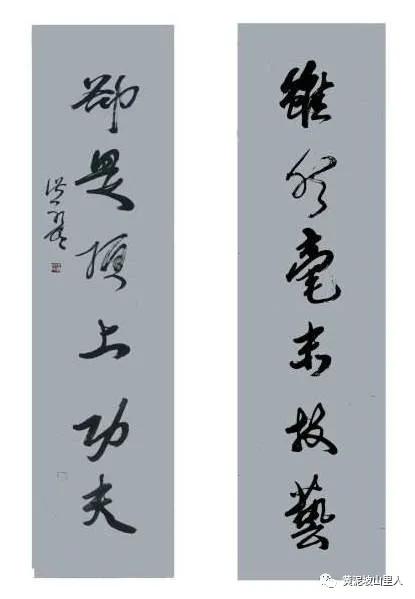 雖然毫末技藝
卻是頂上功夫
黄泥坡山里人